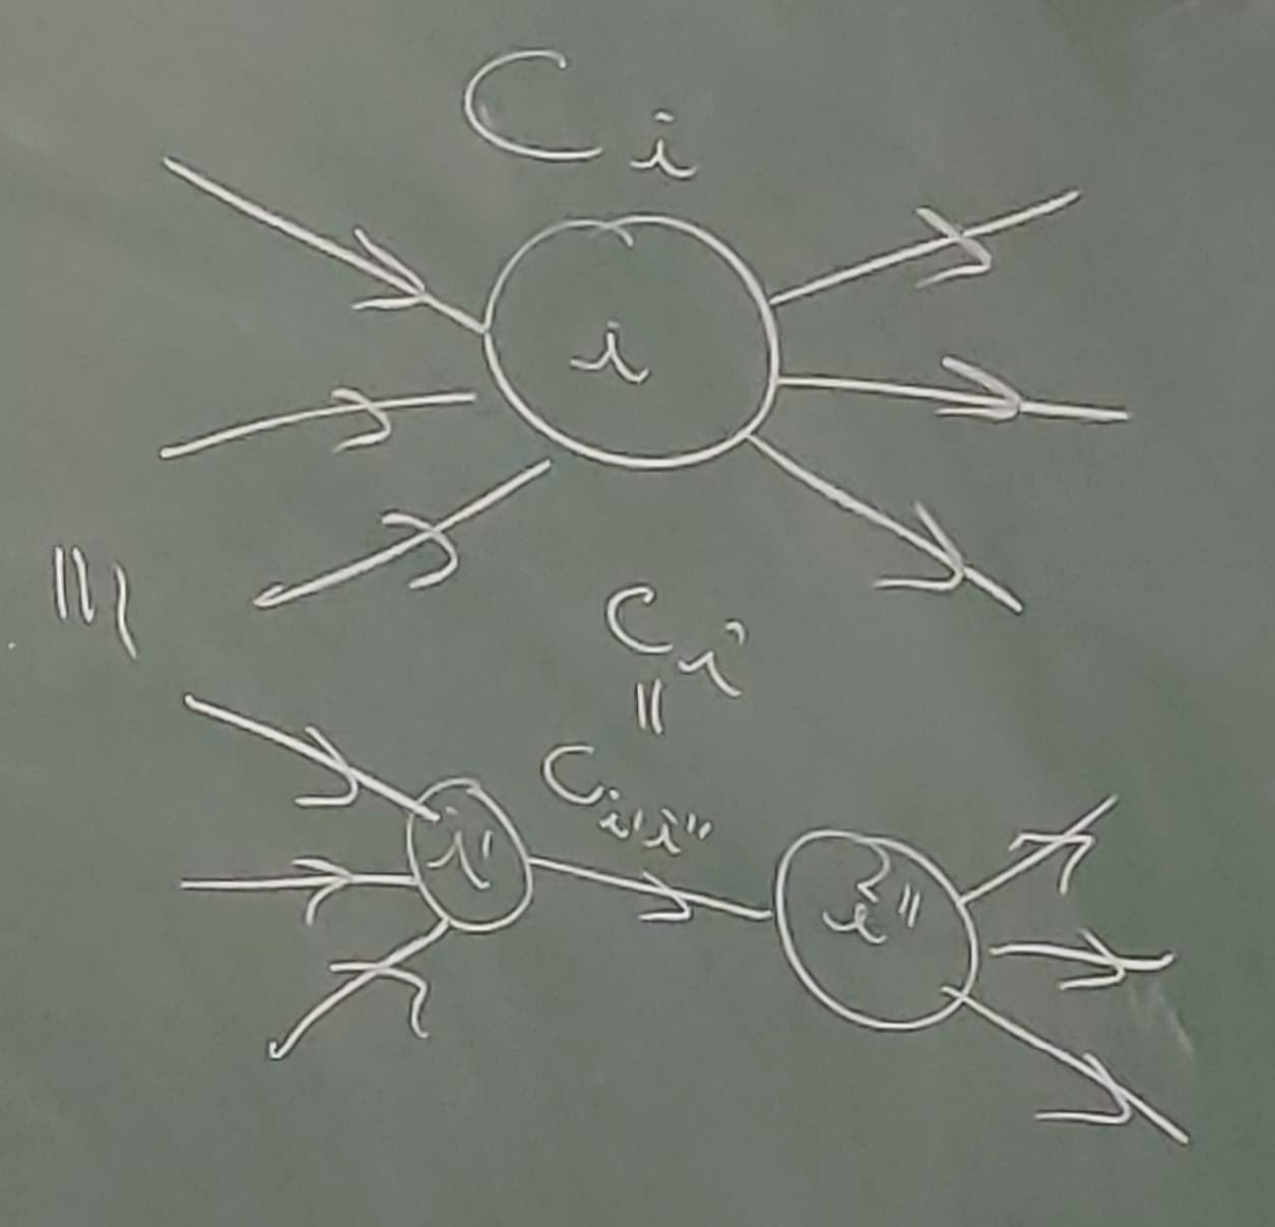 C_i
i
C_i
||
C_{i'i''}
i'
i''